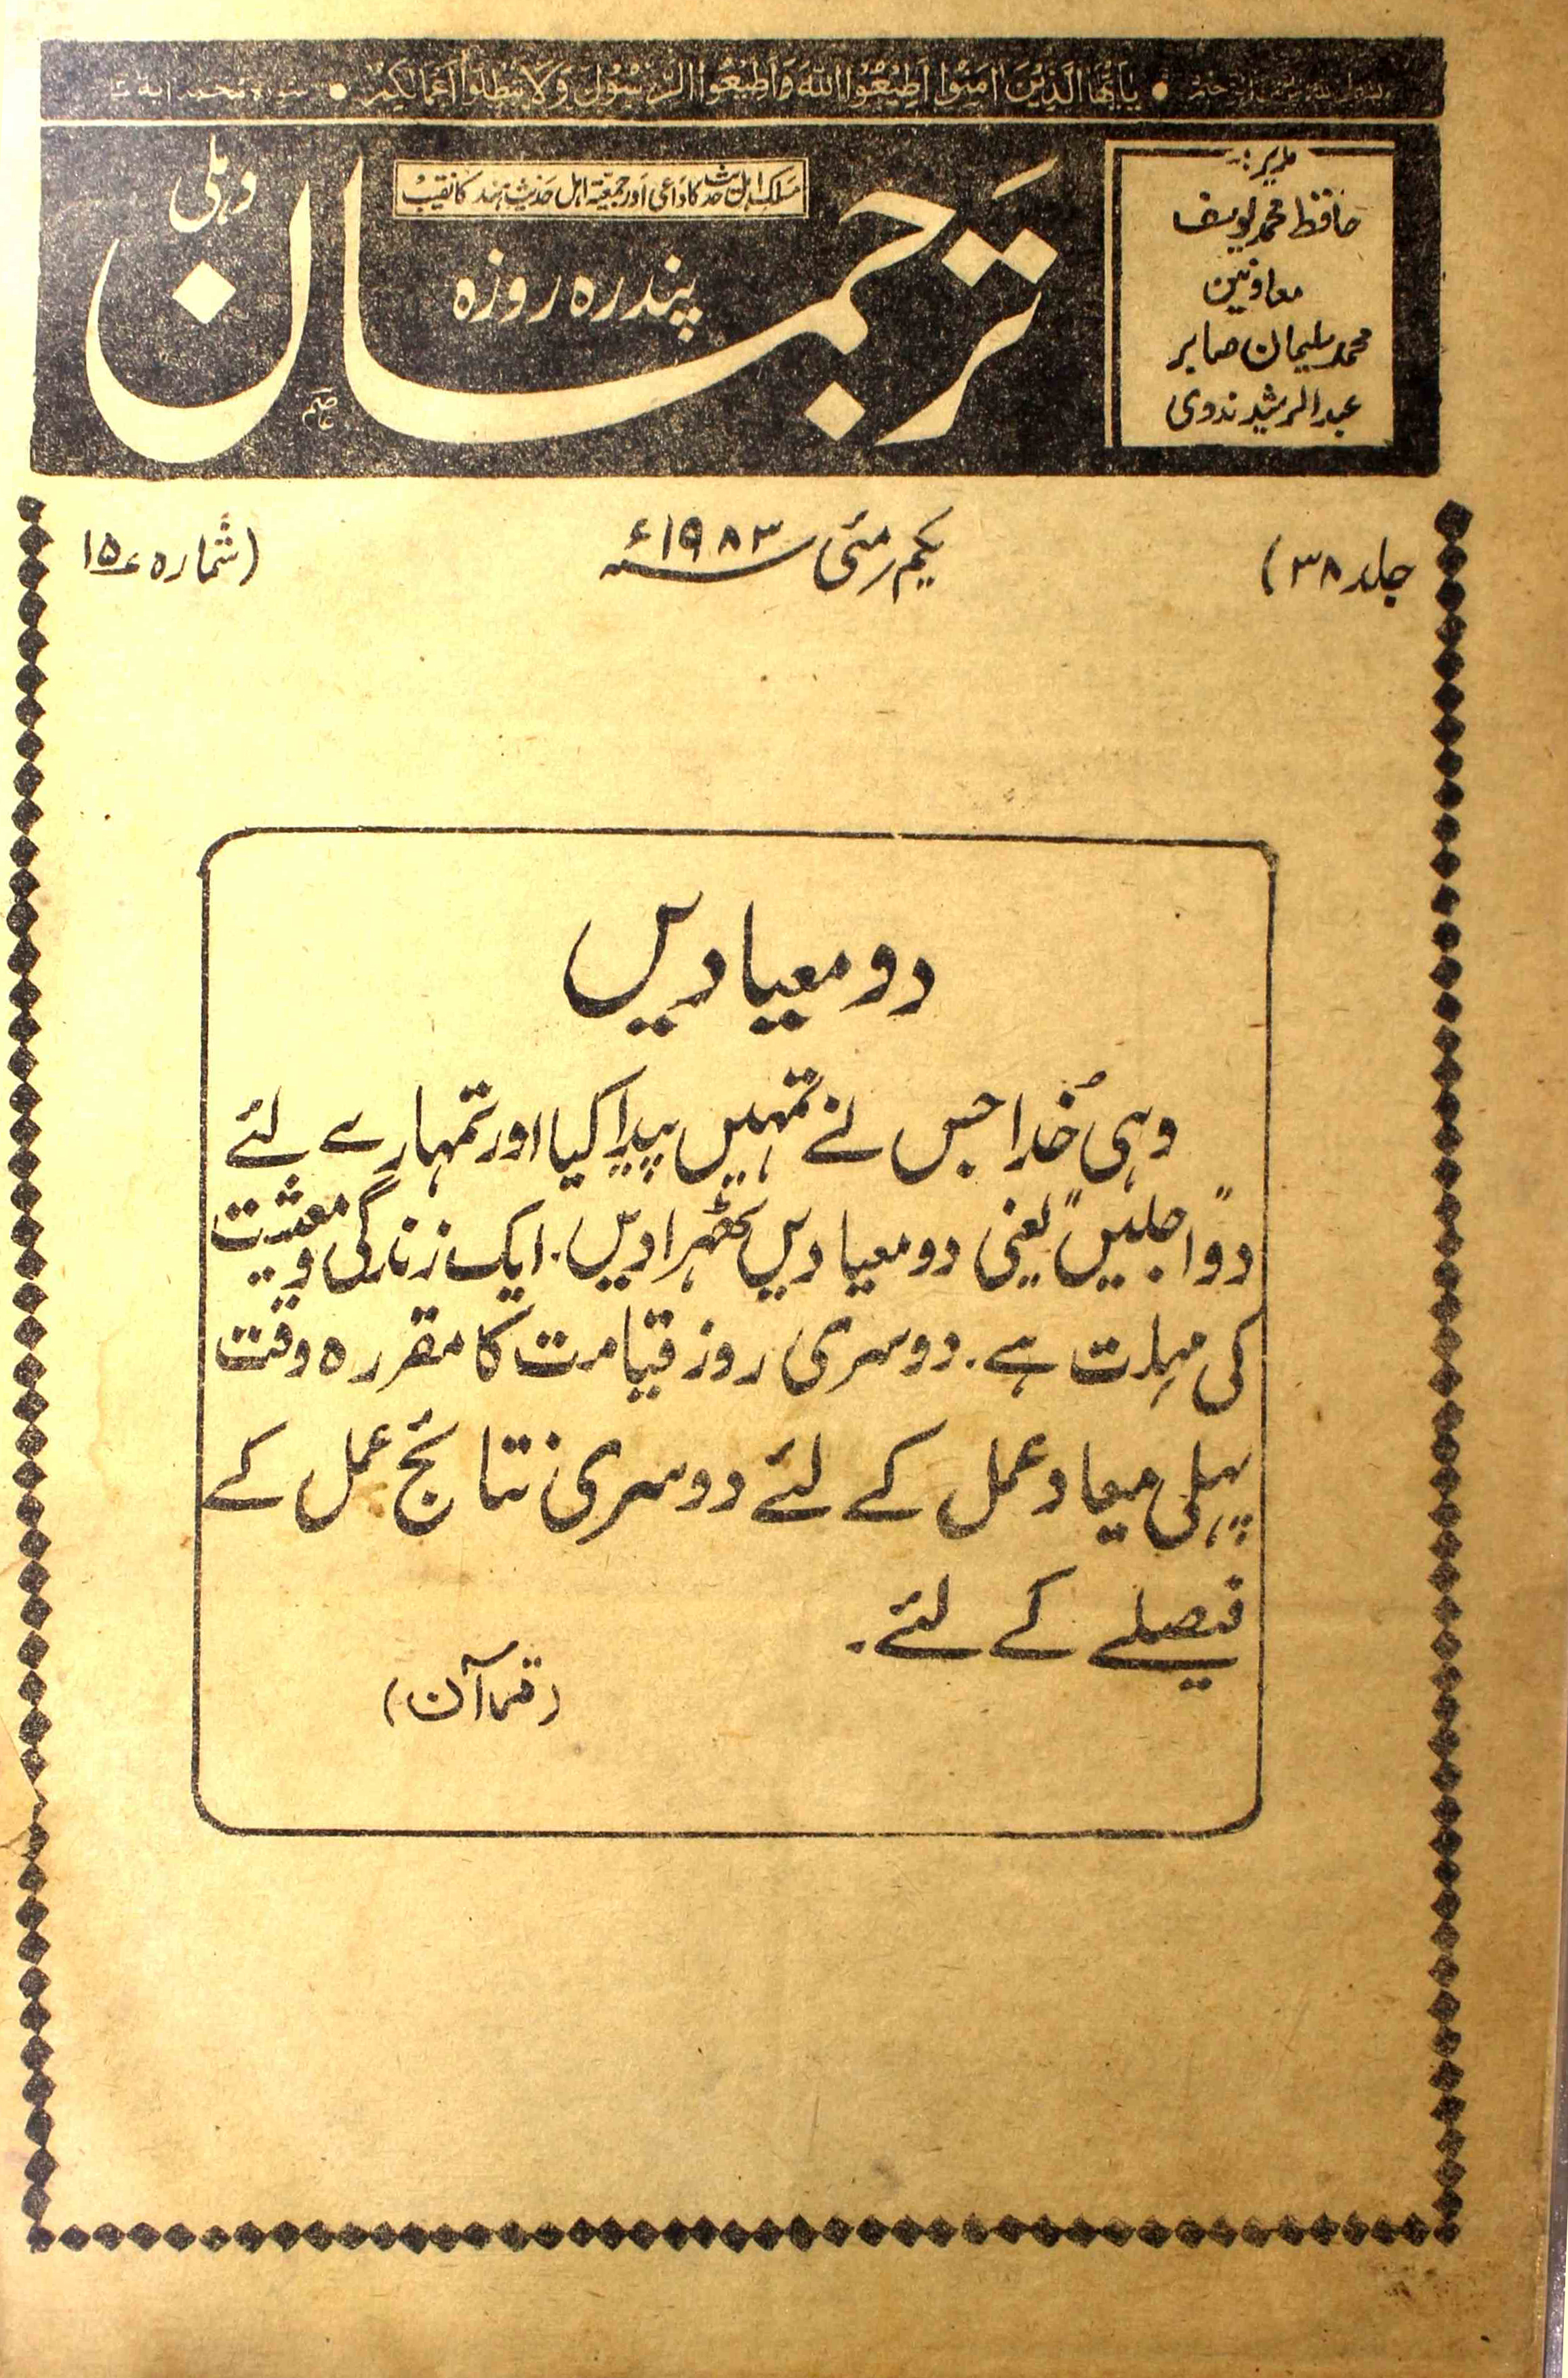 يٰٓاَيُّهَا الَّذِيْنَ اٰمَنُوْا اَطِيْعُوا اللّٰهَ وَاَطِيْعُوا الرَّسُوْلَ وَلَا تُبْطِلُوْٓا اَعْمَالَكُمْ • سورۃ محمد
مدیر:-
حافظ محمد یوسف
معاونین
محمد سلیمان صابر
عبدالرشید ندوی
مسلک اہل حدیث کا داعی اور جمعیۃ اہل حدیث ہند کا نقیب
ترجمان
دہلی
پندرہ روزہ
جلد ۳۸)
یکم مئی ۱۹۸۳ء
(شمارہ ۱۵
دو معیادیں
وہی خُدا جس نے تمہیں پیدا کیا اور تمہارے لئے
دو "اجلیں" یعنی دو معیادیں ٹھہرا دیں. ایک زندگی و معیشت
کی مہلت ہے. دوسری روز قیامت کا مقررہ وقت
پہلی میعاد عمل کے لئے دوسری نتائج عمل کے
فیصلے کے لئے.
(قرآن)